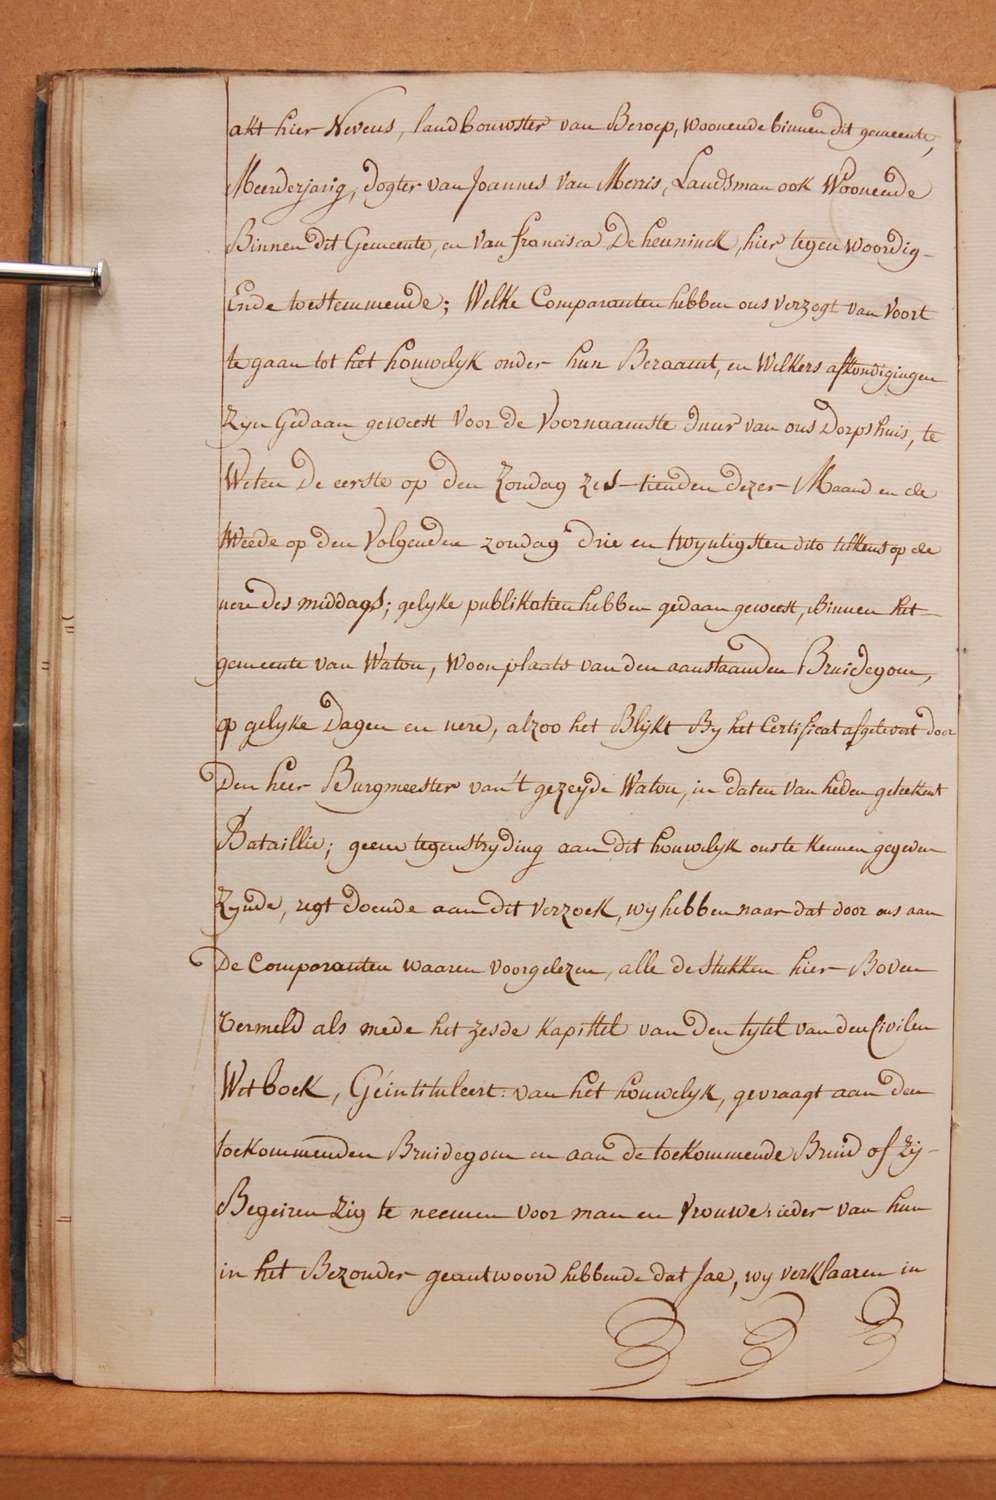 akt hier Nevens, landbouwster van Beroep, woonende binnen dit gemeente,
Meerderjarig, dogter van Joannes van Merris, Landsman ook Woonende
Binnen dit Gemeente, en van francisca De heuninck, hier tegen woordig-
Ende toestemmende; Welke Comparanten hebben ons verzogt van voort
te gaan tot het houwelyk onder hun Beraamt, en Welkers afkondigingen
Zyn Gedaan geweest voor de voornaamste duur van ons Dorps huis, te
Weten De eerste op den Zondag zes-tienden dezer Maand en de
tweede op den volgenden zondag drie en twyntigsten dito telkens op de
uere des middags; gelyke publikatien hebben gedaan geweest, Binnen het
gemeente van Watou, Woonplaats van den aanstaanden Bruidegom,
op gelyke Dagen en uere, alzoo het Blykt By het Certificat afgelevert door
Den heer Burgmeester van't gezeyde Watou, in daten van heden geteekent
Bataillie; geene tegenstryding aan dit houwelyk ons te kennen gegeven
Zynde, regt doende aan dit verzoek, wy hebben naar dat door ons aan
De Comparanten waaren voorgelezen, alle de stukken hier Boven
Vermeld als mede het zesde kapittel van den tytel van den Civilen
Wetboek, Géintituleert: van het houwelyk, gevraagt aan den
toekommenden Bruidegom en aan de toekommende Bruid of Zy-
Begeiren Zig te neemen voor man en vrouwe: ieder van hun
in het Bezonder geantwoord hebbende dat Jae, wy verklaaren in